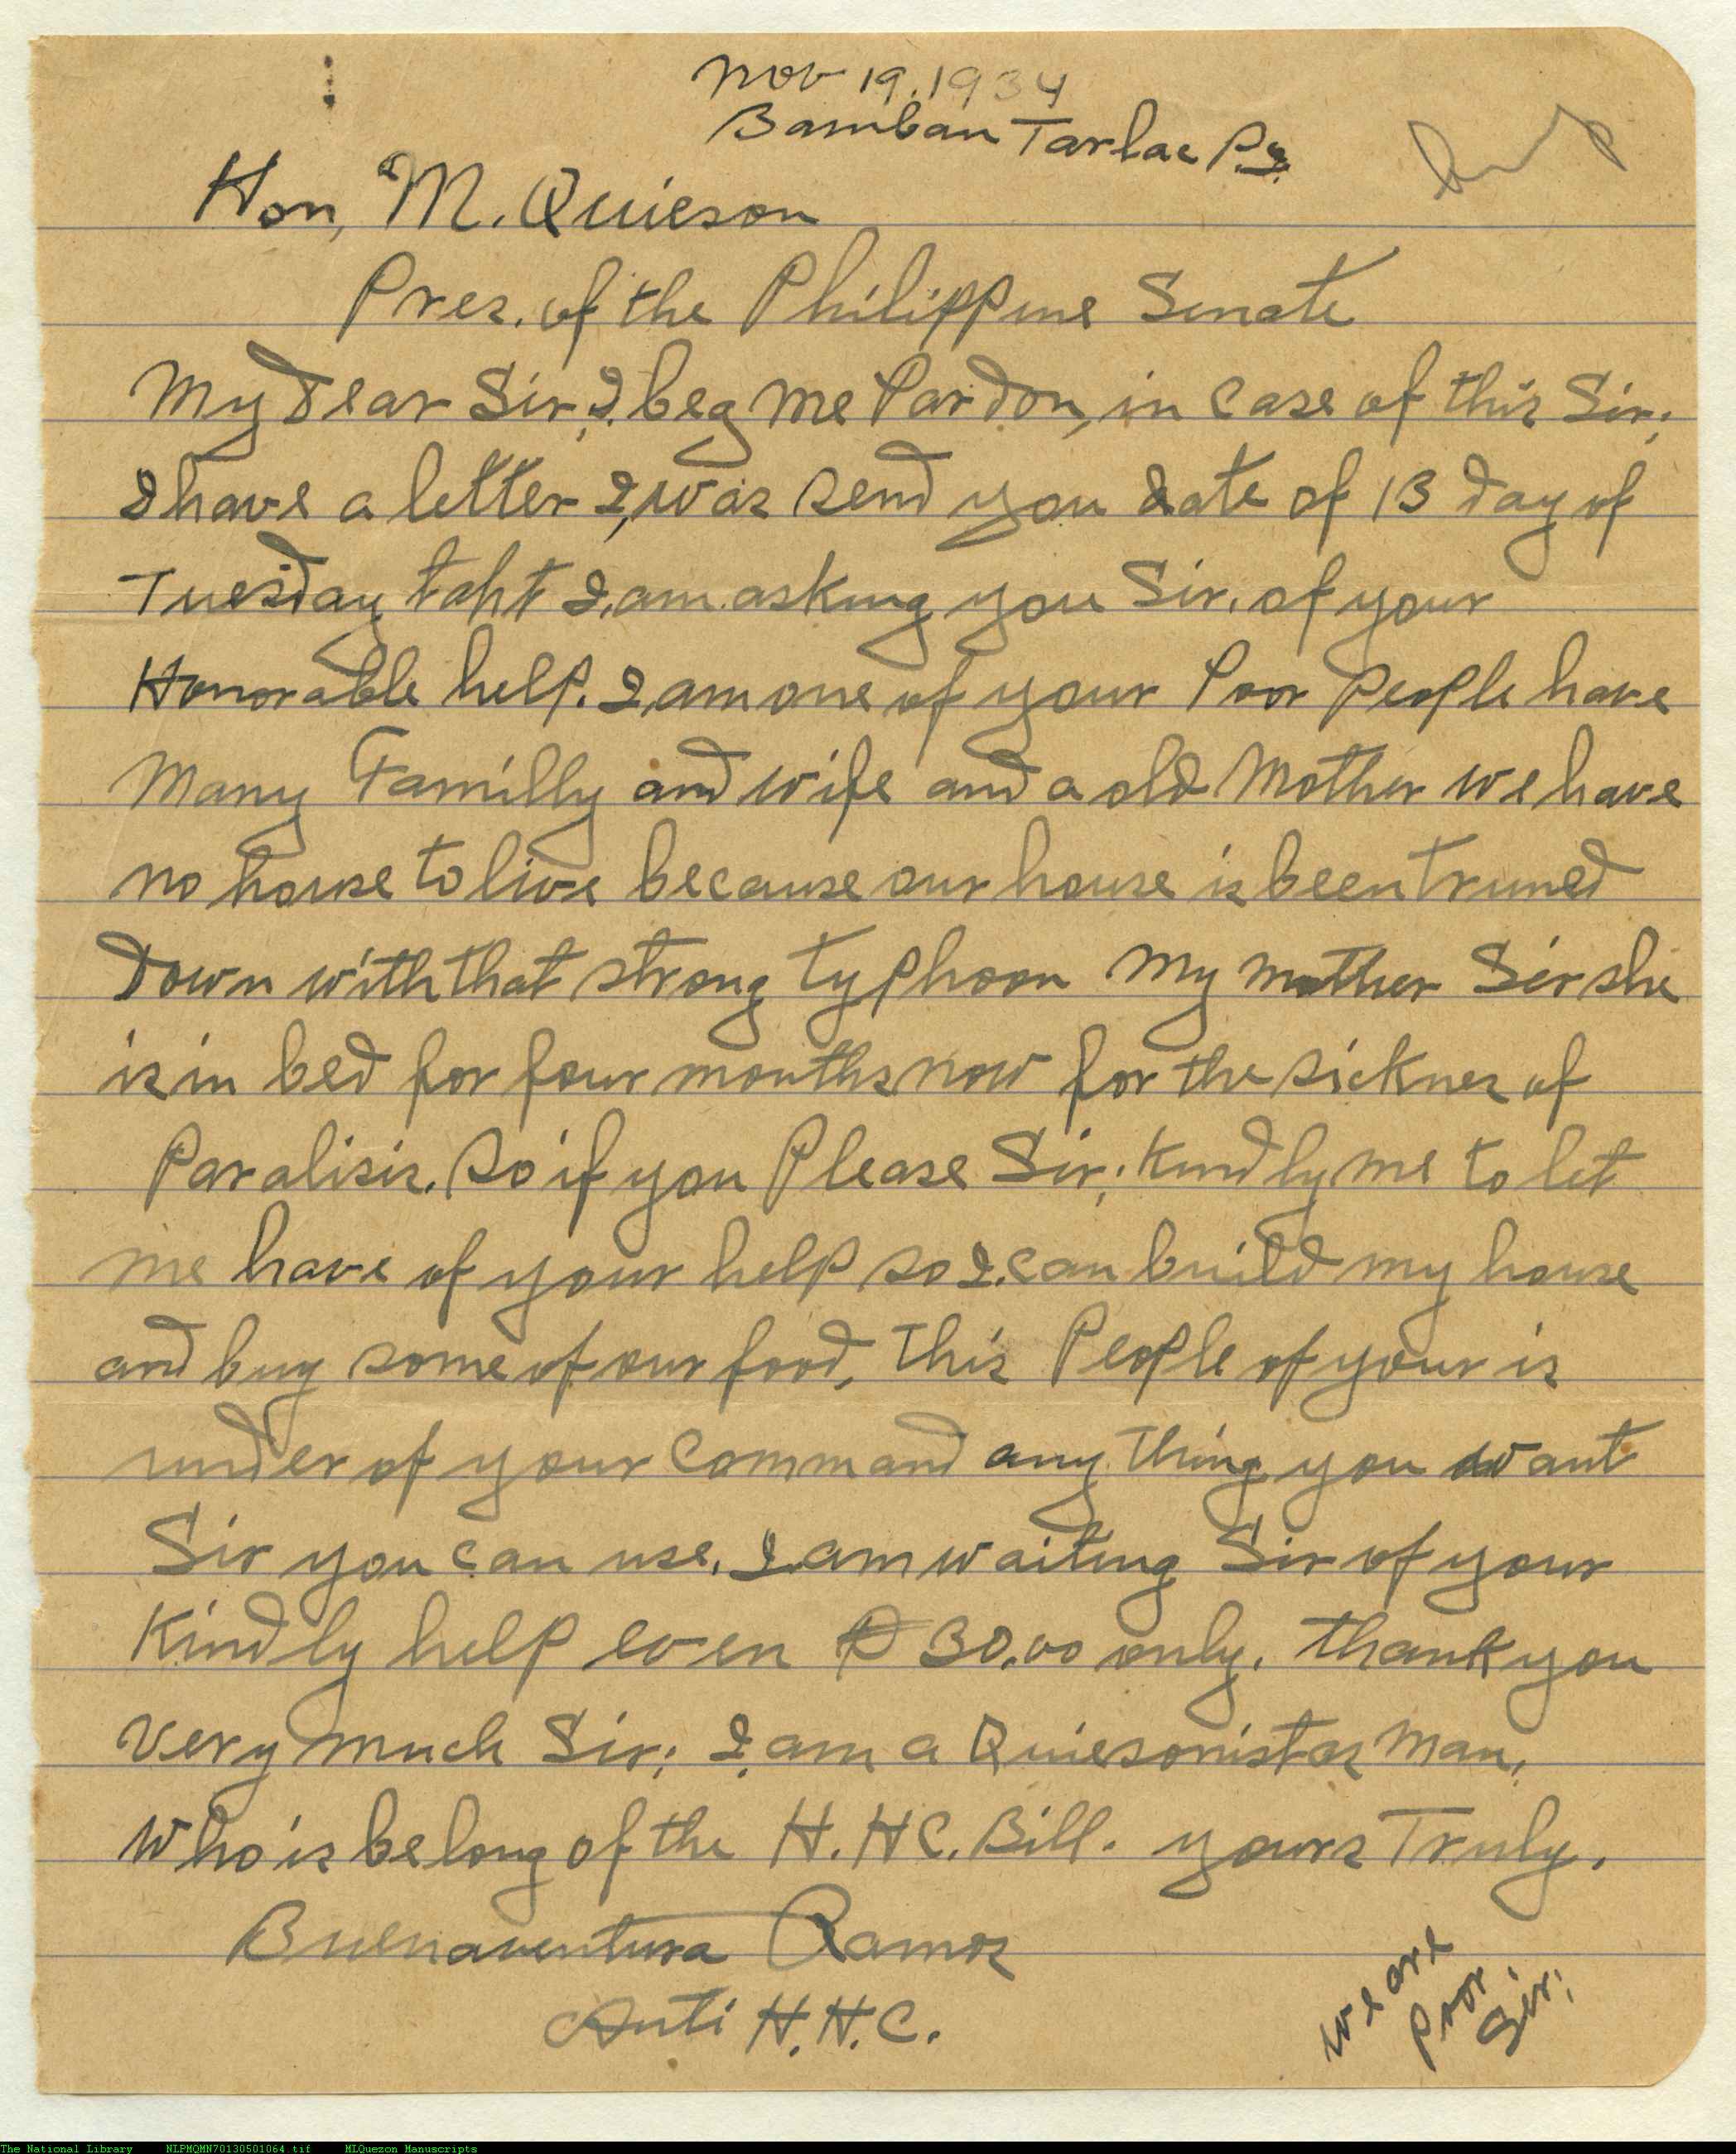 Nov 19, 1934
Bamban Tarlac P.I.
Hon, M. Quieson
Pres. of the Philippine Senate
My Dear Sir, I. beg me Pardon, in case of this Sir;
I have a letter I, was send you date of 13 day of
Tuesday taht I, am asking you Sir, of your
Honorable help. I, am one of your Poor People have
Many Familly and wife and a old Mother we have
no house to live because our house is been truned
Down with that strong typhoon My mother Sir she
is in bed for four months now for the sicknes of
Paralisis. So if you Please Sir; Kindly me to let
me have of your help so I. can build my house
and buy some of our food, This People of your is
under of your Command any thing you want
Sir you can use. I. am waiting Sir of your
Kindly help even ₱ 30.00 only. Thank you
Very much Sir; I, am a Quiesonistas Man,
Who is belong of the H. H C. Bill. yours Truly.
Buenaventura Ramos
Anti H. H. C.
We are
Poor,
Sir;
The National Library NLPMQMN70130501064.tif MLQuezon Manuscripts